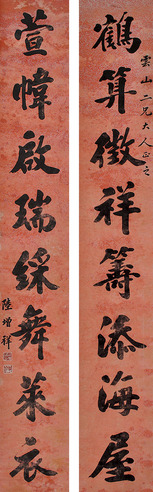 雲山二兄大人正之
鶴算徵祥籌添海屋
萱幃啟瑞綵舞萊衣
陸增祥